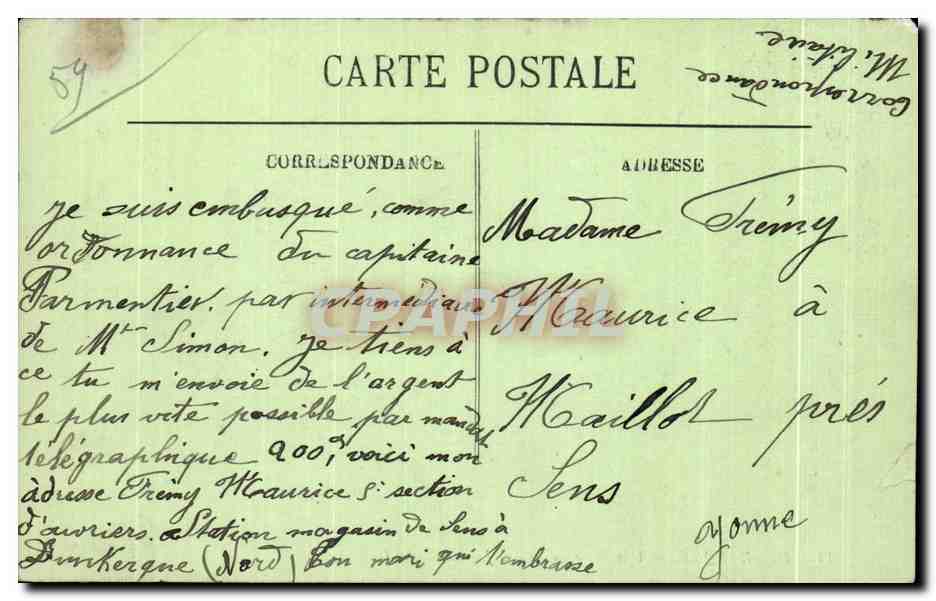 59
Correspondance
Militaire
CARTE POSTALE
CORRESPONDANCE
Je suis embusqué, comme
ordonnance du capitaine
Parmentier. par intermédiaire
de Mr Simon. Je tiens à
ce tu m'envoie de l'argent
le plus vite possible par mandat
télégraphique 200f, voici mon
adresse Trémy Maurice 5e section
d'ouvriers. Station magasin de Sens à
Dunkerque (Nord) Ton mari qui t'embrasse
ADRESSE
Madame Trémy
Maurice à
Maillot prés
Sens
Yonne
CPAPHIL